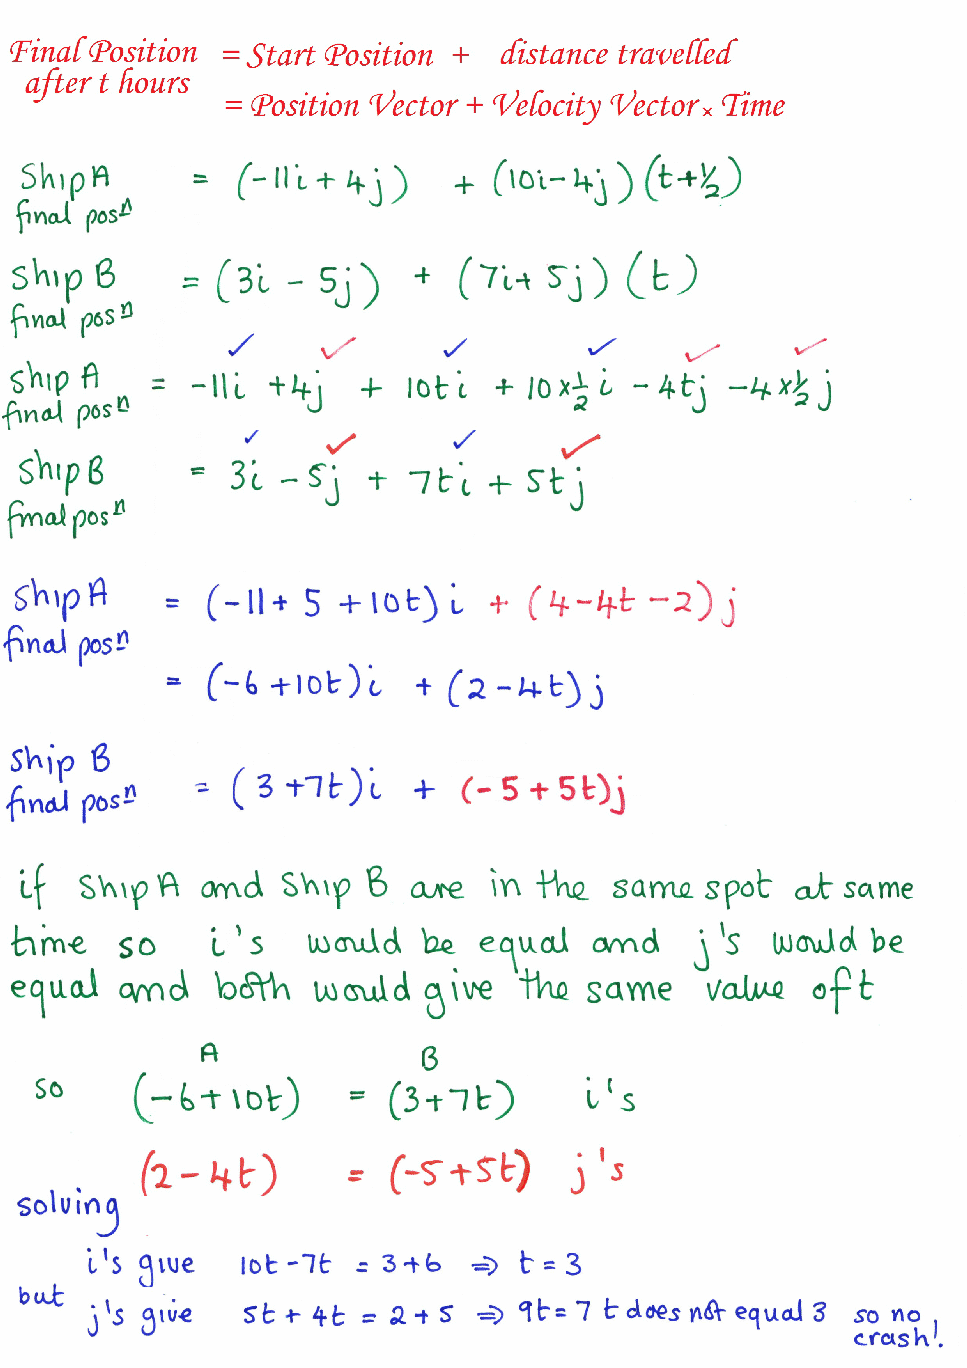 Final Position = Start Position + distance travelled
after t hours
= Position Vector + Velocity Vector × Time
Ship A = (-11i + 4j) + (10i - 4j)(t+½)
final posⁿ
Ship B = (3i - 5j) + (7i + 5j)(t)
final posⁿ
✓ ✓ ✓ ✓ ✓ ✓
Ship A = -11i + 4j + 10ti + 10×½i - 4tj - 4×½j
final posⁿ
✓ ✓ ✓ ✓
Ship B = 3i - 5j + 7ti + 5tj
final posⁿ
Ship A = (-11 + 5 + 10t)i + (4 - 4t - 2)j
final posⁿ
= (-6 + 10t)i + (2 - 4t)j
Ship B
final posⁿ = (3 + 7t)i + (-5 + 5t)j
if Ship A and Ship B are in the same spot at same
time so i's would be equal and j's would be
equal and both would give the same value of t
A B
so (-6 + 10t) = (3 + 7t) i's
(2 - 4t) = (-5 + 5t) j's
solving
i's give 10t - 7t = 3 + 6 ⇒ t = 3
but
j's give 5t + 4t = 2 + 5 ⇒ 9t = 7 t does not equal 3 so no
crash!.